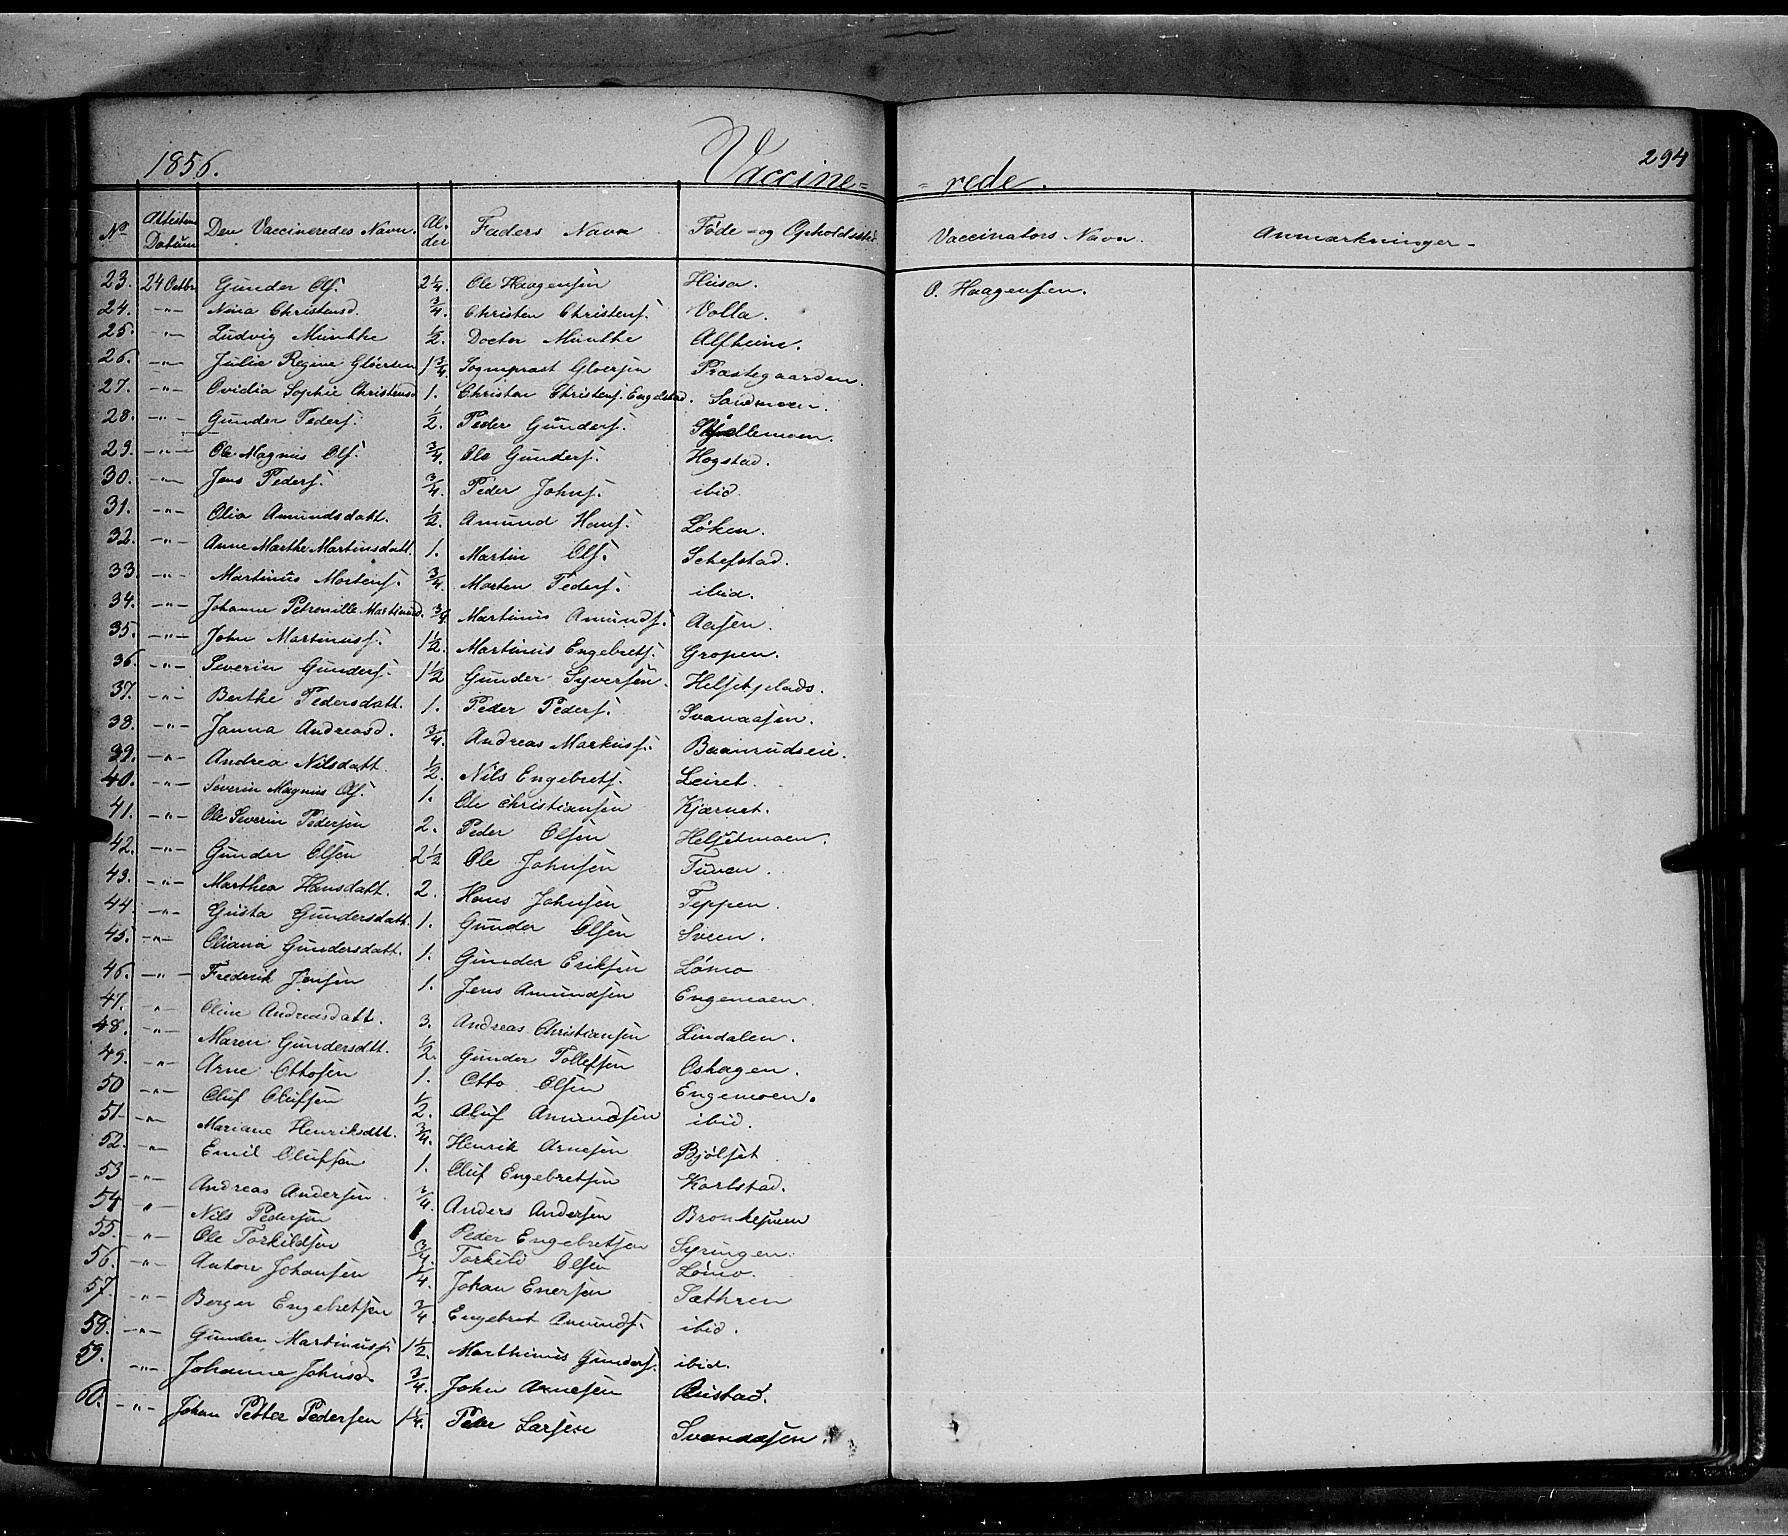 1856. Vaccine= =rede. 294
No Attestens Datum Den Vaccineredes Navn. Al-der Faders Navn Føde- og Opholdssted Vaccinators Navn. Anmærkninger-
23. 24 Octbr Gunder Olſ. 2 1/4. Ole Haagenſen Husa. O. Haagenſen.
24. -"- Nina Christensd. 3/4. Christen Christenſ. Volla.
25. -"- Ludvig Munthe 1/2. Doctor Munthe Alfheim.
26. -"- Julie Regine Gløersen 1 3/4. Sognepræst Gloerſen Præstegaarden.
27. -"- Ovidia Sophie Christensd 1. Christen Christenſ. Engelstad. Sandmoen.
28. -"- Gunder Pederſ. 1/2. Peder Gunderſ.
29. -"- Ole Magnus Olſ. 3/4. Ole Gunderſ. Hogstad.
30. -"- Jens Pederſ. 3/4. Peder Johnſ. ibid.
31. -"- Olia Amundsdatt. 1/2. Amund Hanſ. Løken.
32. -"- Anne Marthe Martinsdatt. 1. Martin Olſ. Schefstad.
33. -"- Martinus Mortenſ. 3/4. Morten Pederſ. ibid.
34. -"- Johanne Petronille Martinusd. 3/4. Martinus Amundſ. Aaſen.
35. -"- John Martinusſ. 1 1/2. Martinus Engebretſ. Gropen.
36. -"- Severin Gunderſ. 1 1/2 Gunder Syverſen. Helſetplads.
37. -"- Berthe Pedersdatt. 1. Peder Pederſ. Svanaaſen.
38. -"- Janna Andreasd. 3/4. Andreas Markusſ. Baanrudseie.
39. -"- Andrea Nilsdatt. 1/2. Nils Engebretſ. Leiret.
40. -"- Severin Magnus Olſ. 1. Ole Christianſen Kjærnet.
41. -"- Ole Severin Pederſen 2. Peder Olſen Helſetmoen.
42. -"- Gunder Olſen 2 1/2 Ole Johnſen Tuven.
43. -"- Marthea Hansdatt. 2. Hans Johnſen Teppen.
44. -"- Gusta Gundersdatt. 1. Gunder Olſen Sveen.
45. -"- Oliana Gundersdatt. 1. Gunder Erikſen Lømo
46. -"- Frederik Jenſen 1. Jens Amundſen Engemoen.
47. " Oline Andreasdatt. 3. Andreas Christianſen Lindalen.
48. -"- Maren Gundersdtt. 1/2. Gunder Tollefſen Oshagen.
49. -"- Arne Ottoſen 1. Otto Olſen Engemoen.
50 -"- Oluf Olufſen 1/2. Oluf Amundſen ibid.
51- -"- Mariane Henriksdtt. 3/4. Henrik Arneſen Bjølſet
52. -"- Emil Olufſen 1. Oluf Engebretſen Karlstad.
53 -"- Andreas Anderſen 3/4. Anders Anderſen
54 " Nils Pederſen 1 Peder Engebretſen Syringen.
55. -"- Ole Torkildſen 3/4. Torkild Olſen Lømo.
56. -"- Anton Johanſen 1/4. Johan Enerſen Sæthren
57. -"- Berger Engebretſen 3/4 Engebret Amundſ. ibid.
58. -"- Gunder Martinusſ. 1 1/2. Marthinus Gunderſ. ibid.
59. -"- Johanne Johnsd. 3/4. John Arneſen Austad.
60. -"- Johan Petter Pederſen 1 1/4. Peder Larſen Svanaaſen.